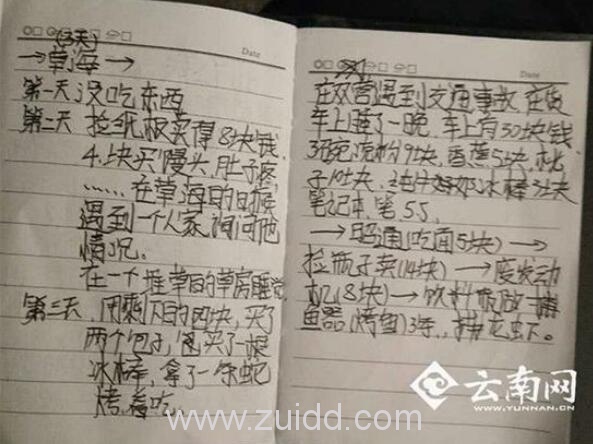 Date
(3天)
→草海→
第一天没吃东西
第二天 捡纸板卖得8块钱.
4块买馒头,肚子疼,
……在草海
遇到一个人家,询问他
情况。
在一个堆草的草房睡觉.
第三天.用剩下的四块,买了
两个包子,买了一根
冰棒,拿了一条蛇
烤着吃.
Date
在双营遇到交通事故.在货
车上睡了一晚.车上有30块钱
3碗凉粉9块.香蕉5块.桃
子10块.纯牛奶冰棒3块
笔记本.笔.5.5.
→昭通(吃面5块)→
捡瓶子卖(14块)→废发动
机(8块)→饮料瓶做一捕
鱼器(烤鱼)3条,捕龙虾。
www.zuidd.com
云南网
WWW.YUNNAN.CN